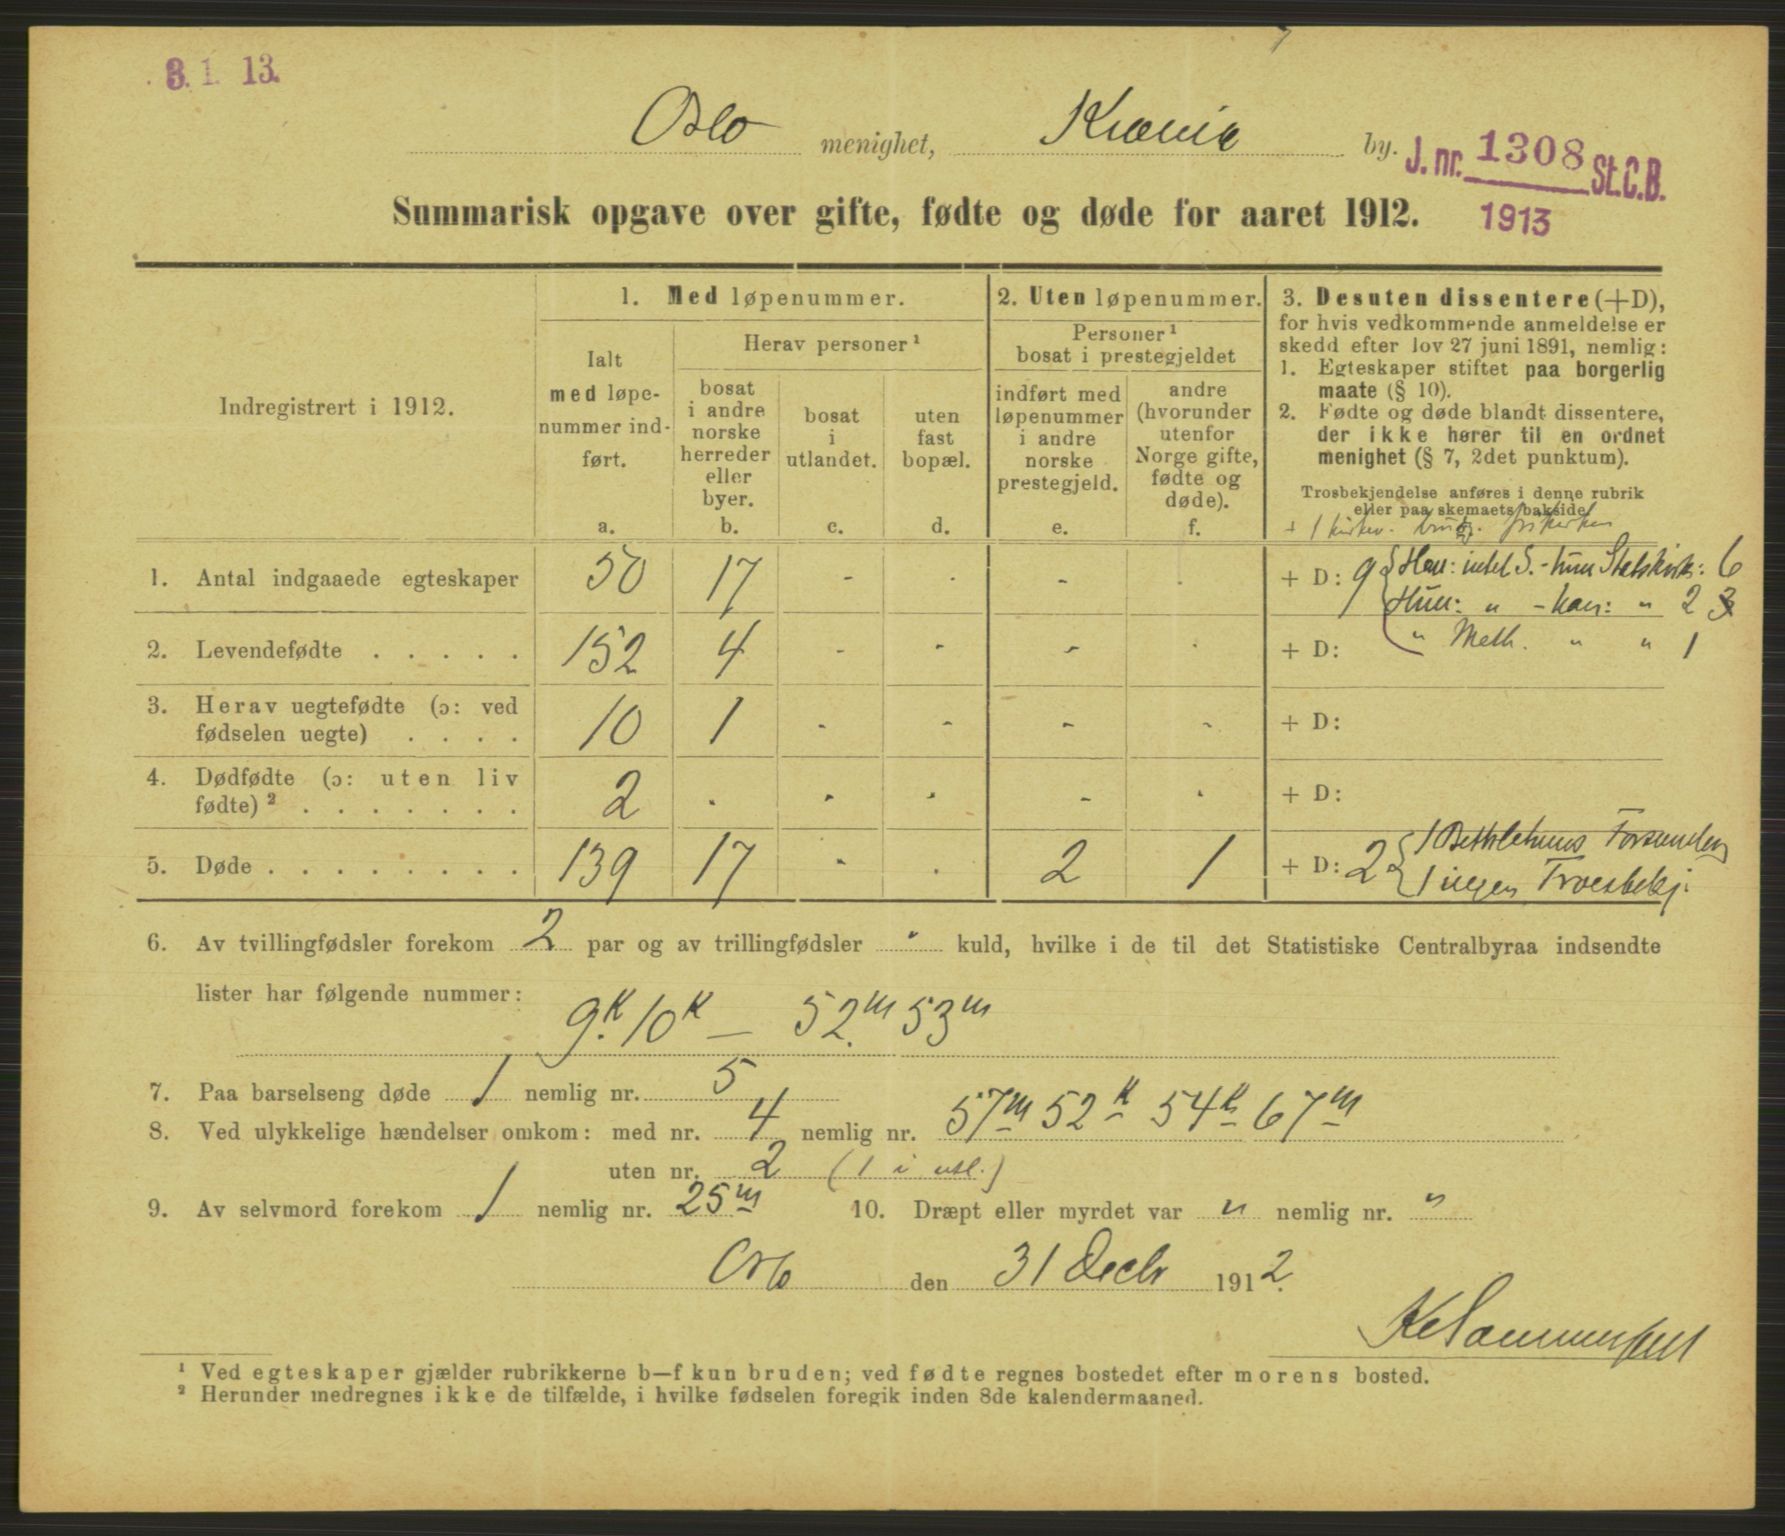 3. 1. 13.
Oslo menighet, Krania by.
J. nr. 1308 St.C.B.
1913
Summarisk opgave over gifte, fødte og døde for aaret 1912.
Indregistrert i 1912.
1. Med løpenummer.
Ialt
med løpe-
nummer ind-
ført.
a.
Herav personer ¹
bosat
i andre
norske
herreder
eller
byer.
b.
bosat
i
utlandet.
c.
uten
fast
bopæl.
d.
2. Uten løpenummer.
Personer ¹
bosat i prestegjeldet
indført med
løpenummer
i andre
norske
prestegjeld.
e.
andre
(hvorunder
utenfor
Norge gifte,
fødte og
døde).
f.
3. Desuten dissentere (+D),
for hvis vedkommende anmeldelse er
skedd efter lov 27 juni 1891, nemlig:
1. Egteskaper stiftet paa borgerlig
maate (§ 10).
2. Fødte og døde blandt dissentere,
der ikke hører til en ordnet
menighet (§ 7, 2det punktum).
Trosbekjendelse anføres i denne rubrik
eller paa skemaets bakside.
1. Antal indgaaede egteskaper 50 17 - - - - + D: 9 { Han: intet S. - hun Statskirk: 6
Hun: " - han: " 2 3
" Meth. " " 1
2. Levendefødte . . . . . 152 4 - - - - + D:
3. Herav uegtefødte (ɔ: ved
fødselen uegte) . . . . 10 1 - - - - + D:
4. Dødfødte (ɔ: uten liv
fødte) ² . . . . . . . 2 - - - - - + D:
5. Døde . . . . . . . . 139 17 - - 2 1 + D: 2 { 1 Bethlehems Forsamling
1 ingen Troesbekj.
6. Av tvillingfødsler forekom 2 par og av trillingfødsler " kuld, hvilke i de til det Statistiske Centralbyraa indsendte
lister har følgende nummer:
9.k 10k — 52.m 53m
7. Paa barselseng døde 1 nemlig nr. 5
8. Ved ulykkelige hændelser omkom: med nr. 4 nemlig nr. 57m 52k 54k 67m
uten nr. 2 (1 i utl.)
9. Av selvmord forekom 1 nemlig nr. 25m 10. Dræpt eller myrdet var " nemlig nr. "
Oslo den 31 Decbr 1912.
¹ Ved egteskaper gjælder rubrikkerne b—f kun bruden; ved fødte regnes bostedet efter morens bosted.
² Herunder medregnes ikke de tilfælde, i hvilke fødselen foregik inden 8de kalendermaaned.